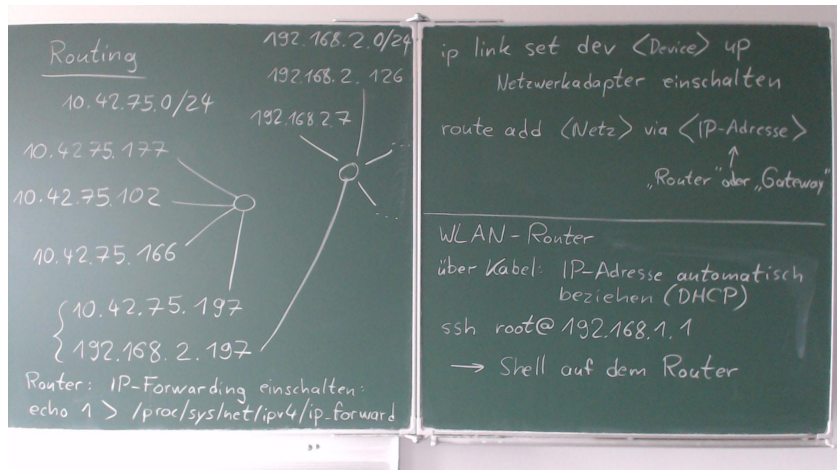 Routing
10.42.75.0/24
192.168.2.0/24
192.168.2.126
192.168.2.7
10.42.75.177
10.42.75.102
10.42.75.166
10.42.75.197
192.168.2.197
...
...
Router: IP-Forwarding einschalten:
echo 1 > /proc/sys/net/ipv4/ip_forward
ip link set dev <Device> up
Netzwerkadapter einschalten
route add <Netz> via <IP-Adresse>
„Router" oder „Gateway"
WLAN-Router
über Kabel: IP-Adresse automatisch
beziehen (DHCP)
ssh root@192.168.1.1
→ Shell auf dem Router